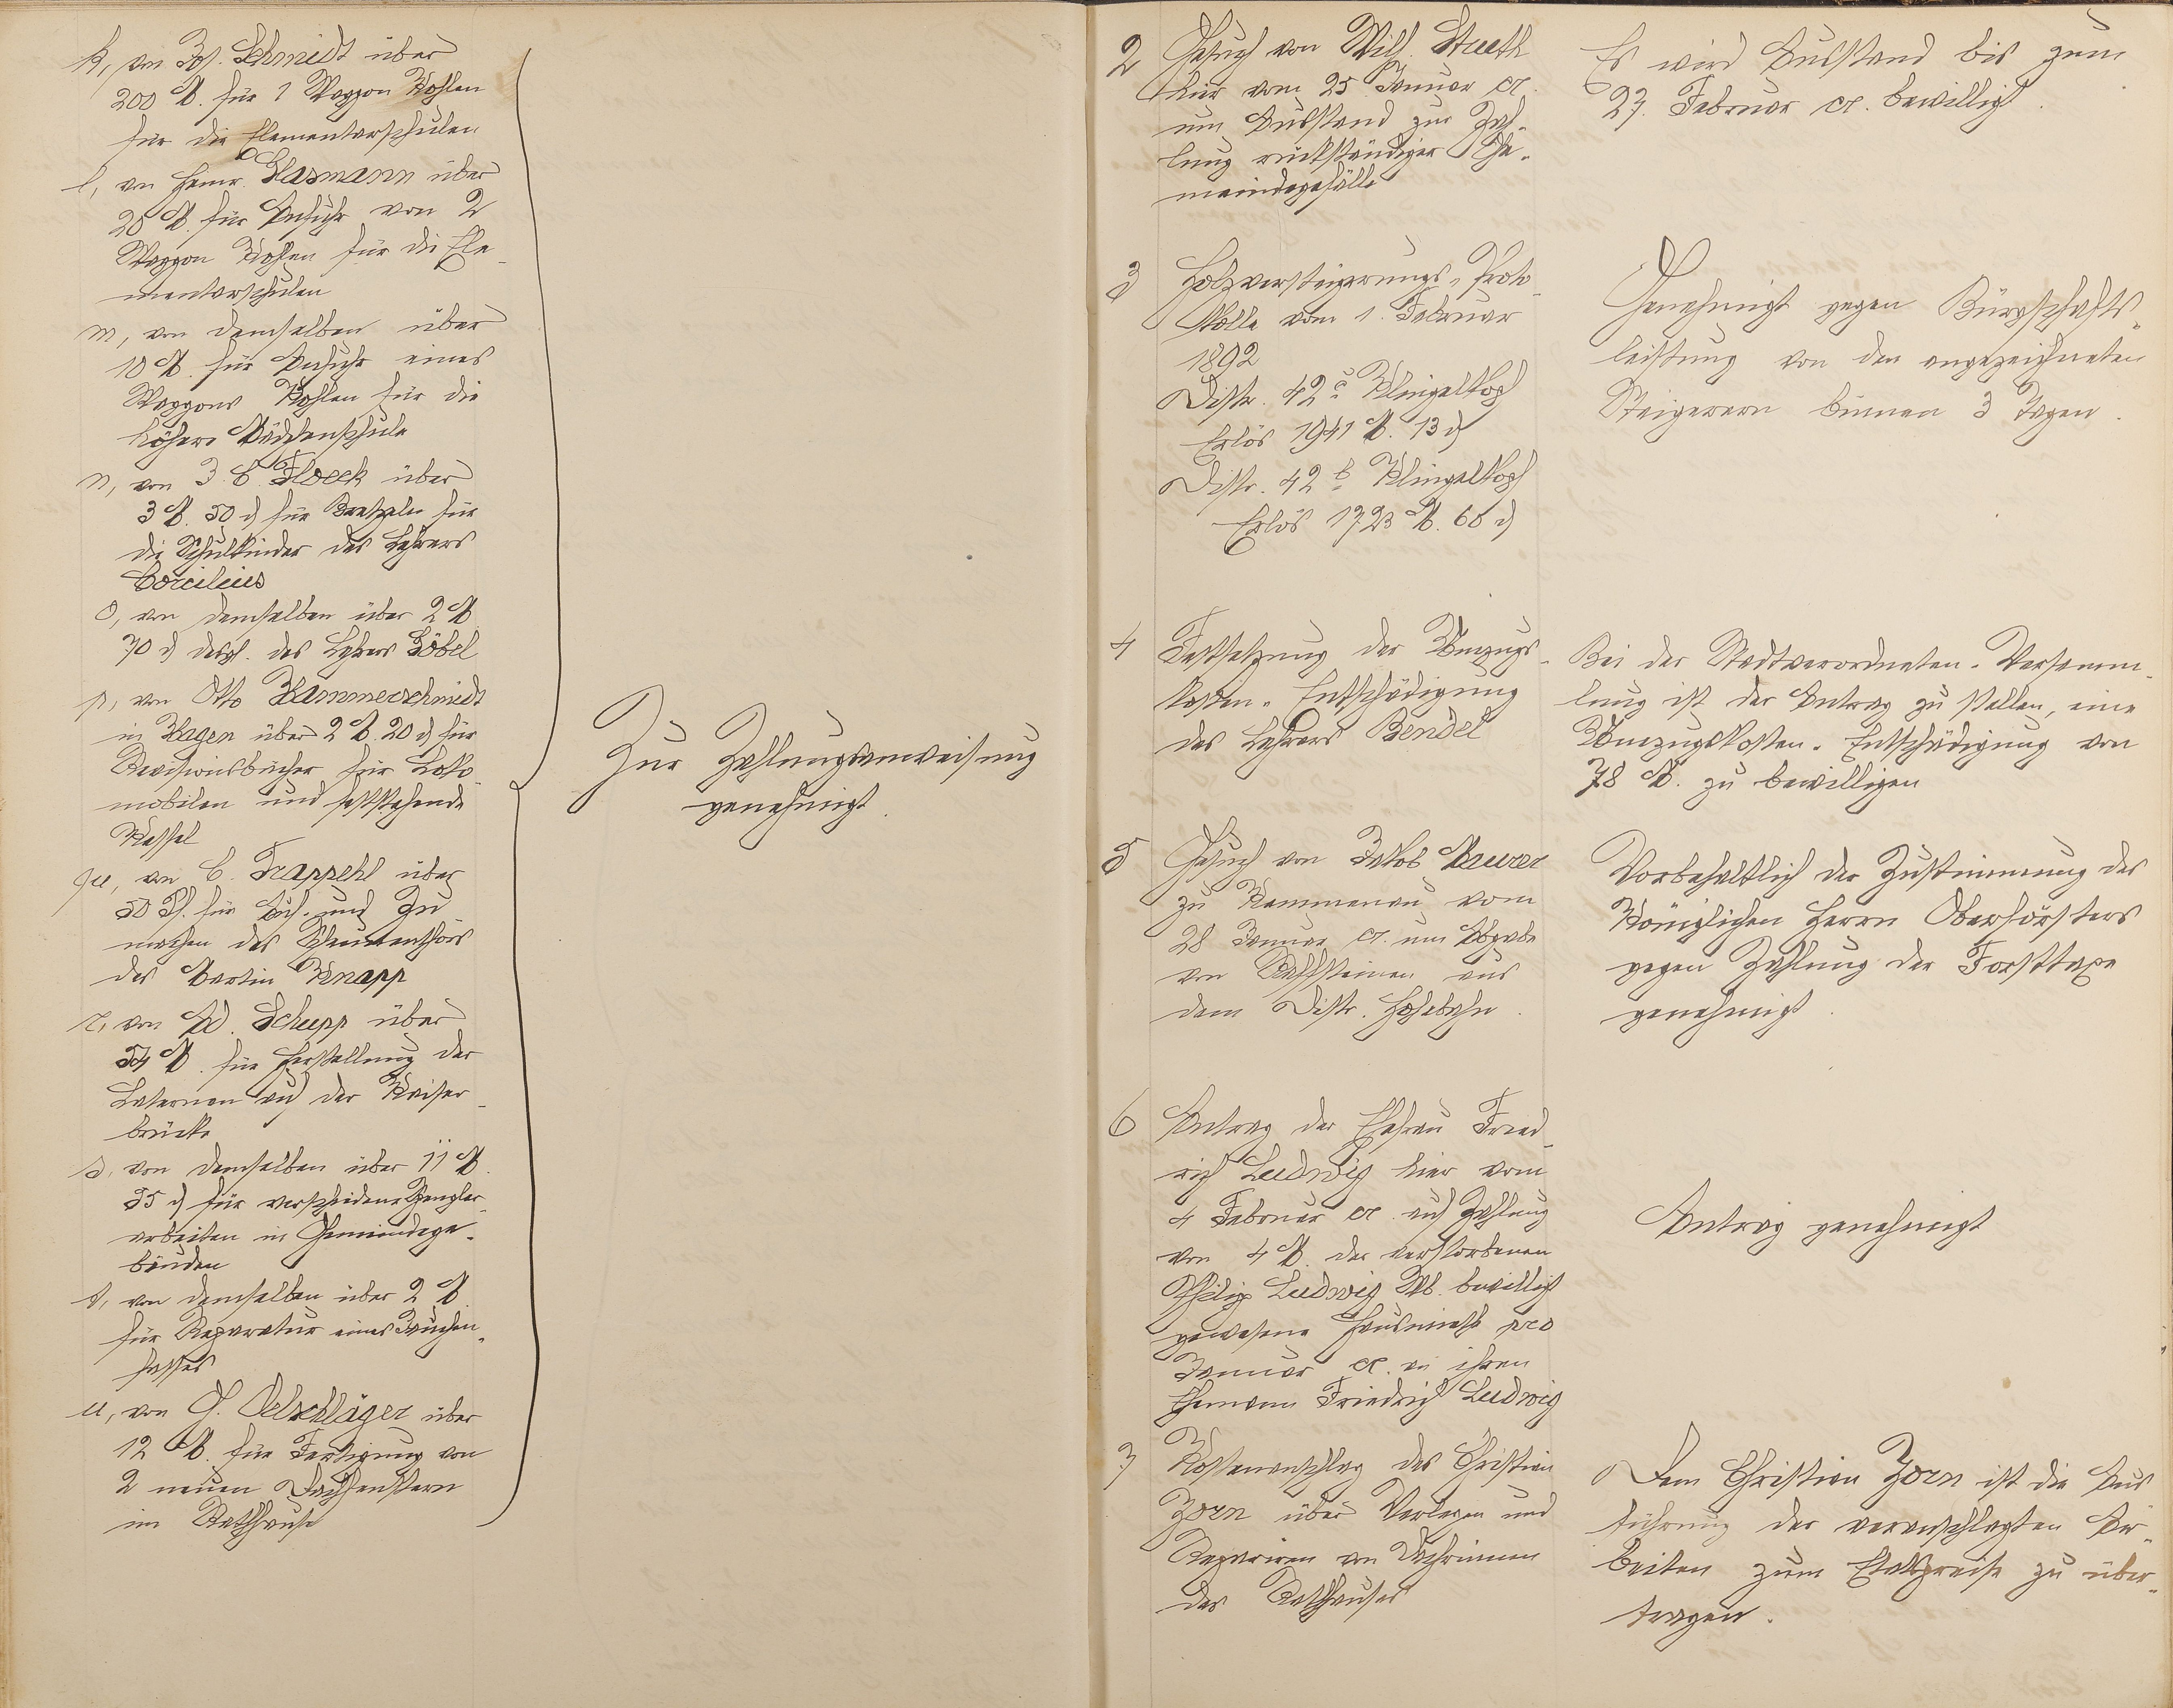 k, von Jos. Schmidt über
200 M. für 1 Waggon Kohlen
für die Elementarschulen
l, von Heinr. Hasmann über
20 M. für Anfuhr von 2
Waggon Kohlen für die Ele-
mentarschulen
m, von demselben über
10 M. für Anfuhr eines
Waggons Kohlen für die
höhere Mädchenschule
n, von J. C. Flöck über
3 M. 50 d für Bretzeln für
die Schulkinder des Lehrers
Corcilius
o, von demselben über 2 M.
70 d desgl. des Lehrers Göbel
p, von Otto Hammerschmidt
in Hagen über 2 M. 20 d für
Revisionsbücher für Loko-
mobilen und feststehende
Kessel
qu, von C. Trappehl über
50 Pf. für Auf- und Zu-
machen des Scheuenthors
des Martin Knapp
r, von Ad. Schupp über
54 M. für Herstellung der
Laternen auf der Kaiser-
brücke
s, von demselben über 11 M.
55 d für verschiedene Spengler-
arbeiten in Gemeindege-
bäuden
t, von demselben über 2 M.
für Reparatur eines Jauchen-
fasses
u, von G. Oelschläger über
12 M. für Fertigung von
2 neuen Dachfenstern
im Rathhause
Zur Zahlungsanweisung
genehmigt.
2 Gesuch von Wilh. Stueth
hier vom 25 Januar cr.
um Ausstand zur Zah-
lung rückständiger Ge-
meindegefälle
Es wird Ausstand bis zum
27. Februar cr. bewilligt.
3 Holzversteigerungs-Proto-
kolle vom 1. Februar
1892
Distr. 42a Klingelkopf
Erlös 1941 M. 13 d
Distr. 42b Klingelkopf
Erlös 1723 M. 60 d
Genehmigt gegen Bürgschafts-
leistung von den angezeichneten
Steigerern binnen 3 Tagen.
4 Festsetzung der Umzugs-
kosten-Entschädigung
des Lehrers Bendel
Bei der Stadtverordneten-Versamm-
lung ist der Antrag zu stellen, eine
Umzugskosten-Entschädigung von
78 M. zu bewilligen
5 Gesuch von Jakob Maurer
zu Kemmenau vom
28 Januar cr. um Abgabe
von Kalksteinen aus
dem Distr. Hohebahn.
Vorbehaltlich der Zustimmung des
Königlichen Herrn Oberförsters
gegen Zahlung der Forsttaxe
genehmigt.
6 Antrag der Ehefrau Fried-
rich Ludwig hier vom
4 Februar cr. auf Zahlung
von 4 M. der verstorbenen
Philipp Ludwig Wb. bewilligt
gewesene Hausmiethe pro
Januar cr. an ihren
Ehemann Friedrich Ludwig
Antrag genehmigt
7 Kostenanschlag des Christian
Zorn über Verlegen und
Repariren von Dachrinnen
des Rathhauses
Dem Christian Zorn ist die Aus-
führung der veranschlagten Ar-
beiten zum Etatspreise zu über-
tragen.